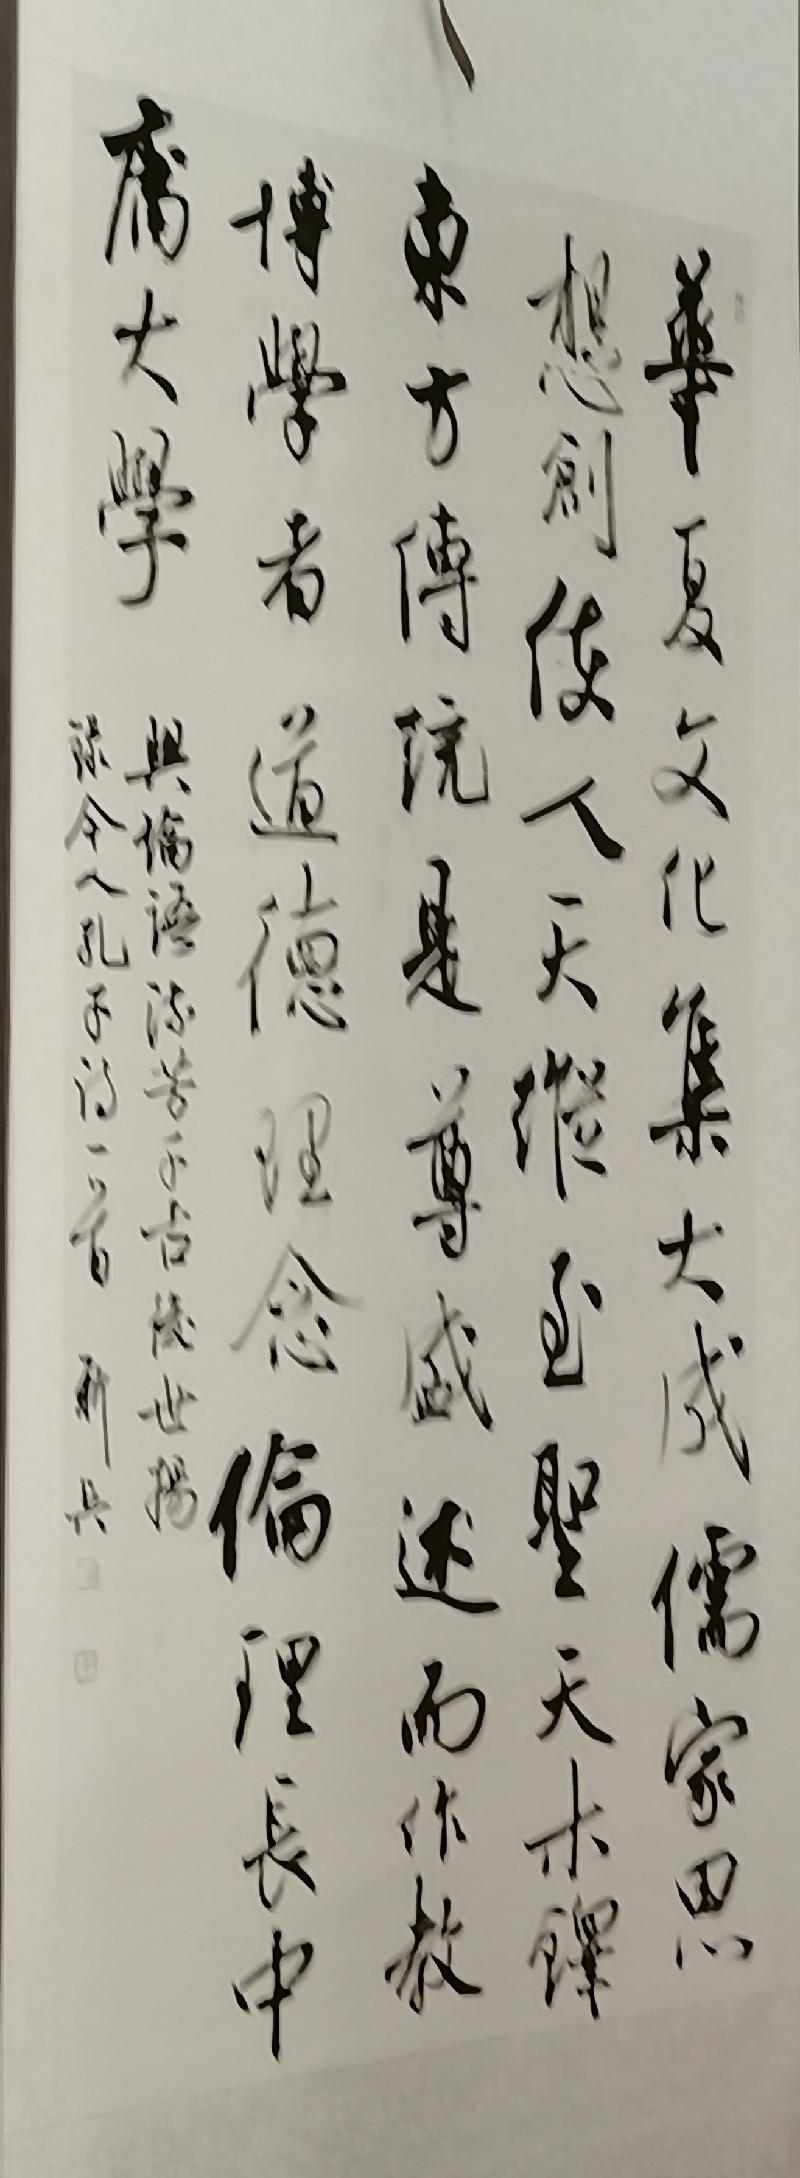 華夏文化集大成儒家思
想創使人天縱至聖天木鐸
東方傳統是尊盛述而作教
博學者道德理念倫理長中
庸大學
與倫語流芳千古後世揚
錄今人孔子詩一首